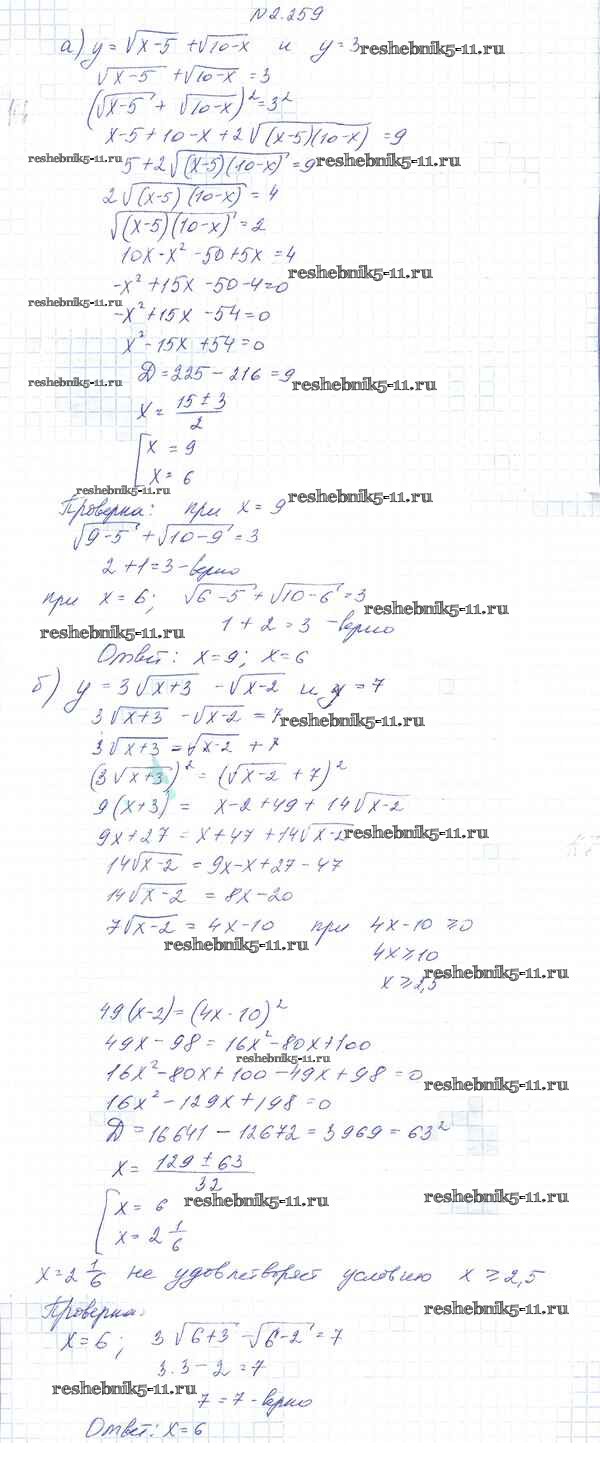 №2.259
а) y = √x-5 + √10-x и y = 3
reshebnik5-11.ru
√x-5 + √10-x = 3
(√x-5 + √10-x)² = 3²
x-5+10-x+2√(x-5)(10-x) = 9
reshebnik5-11.ru
5+2√(x-5)(10-x) = 9
reshebnik5-11.ru
2√(x-5)(10-x) = 4
√(x-5)(10-x) = 2
10x-x²-50+5x=4
reshebnik5-11.ru
-x²+15x-50-4=0
reshebnik5-11.ru
-x²+15x-54=0
x²-15x+54=0
reshebnik5-11.ru
Д=225-216=9
reshebnik5-11.ru
x = 15±3/2
[x = 9
x = 6
reshebnik5-11.ru
Проверка: при x = 9
reshebnik5-11.ru
√9-5 + √10-9 = 3
2+1=3-верно
при x = 6; √6-5 + √10-6 = 3
reshebnik5-11.ru
reshebnik5-11.ru
1+2=3-верно
Ответ: x=9; x=6
б) y = 3√x+3 - √x-2 и y = 7
3√x+3 - √x-2 = 7
reshebnik5-11.ru
3√x+3 = √x-2 + 7
(3√x+3)² = (√x-2 + 7)²
9(x+3) = x-2+49+14√x-2
9x+27 = x+47+14√x-2
reshebnik5-11.ru
14√x-2 = 9x-x+27-47
14√x-2 = 8x-20
7√x-2 = 4x-10 при 4x-10 ≥ 0
reshebnik5-11.ru
4x≥10
reshebnik5-11.ru
x ≥ 2,5
49(x-2)=(4x-10)²
49x-98=16x²-80x+100
reshebnik5-11.ru
16x²-80x+100-49x+98=0
reshebnik5-11.ru
16x²-129x+198=0
Д=16641-12672=3969=63²
x = 129±63/32
reshebnik5-11.ru
reshebnik5-11.ru
[x = 6
x = 2 1/6
x=2 1/6 не удовлетворяет условию x ≥ 2,5
Проверка:
reshebnik5-11.ru
x=6; 3√6+3 - √6-2 = 7
3·3-2=7
reshebnik5-11.ru
7=7-верно
Ответ: x=6